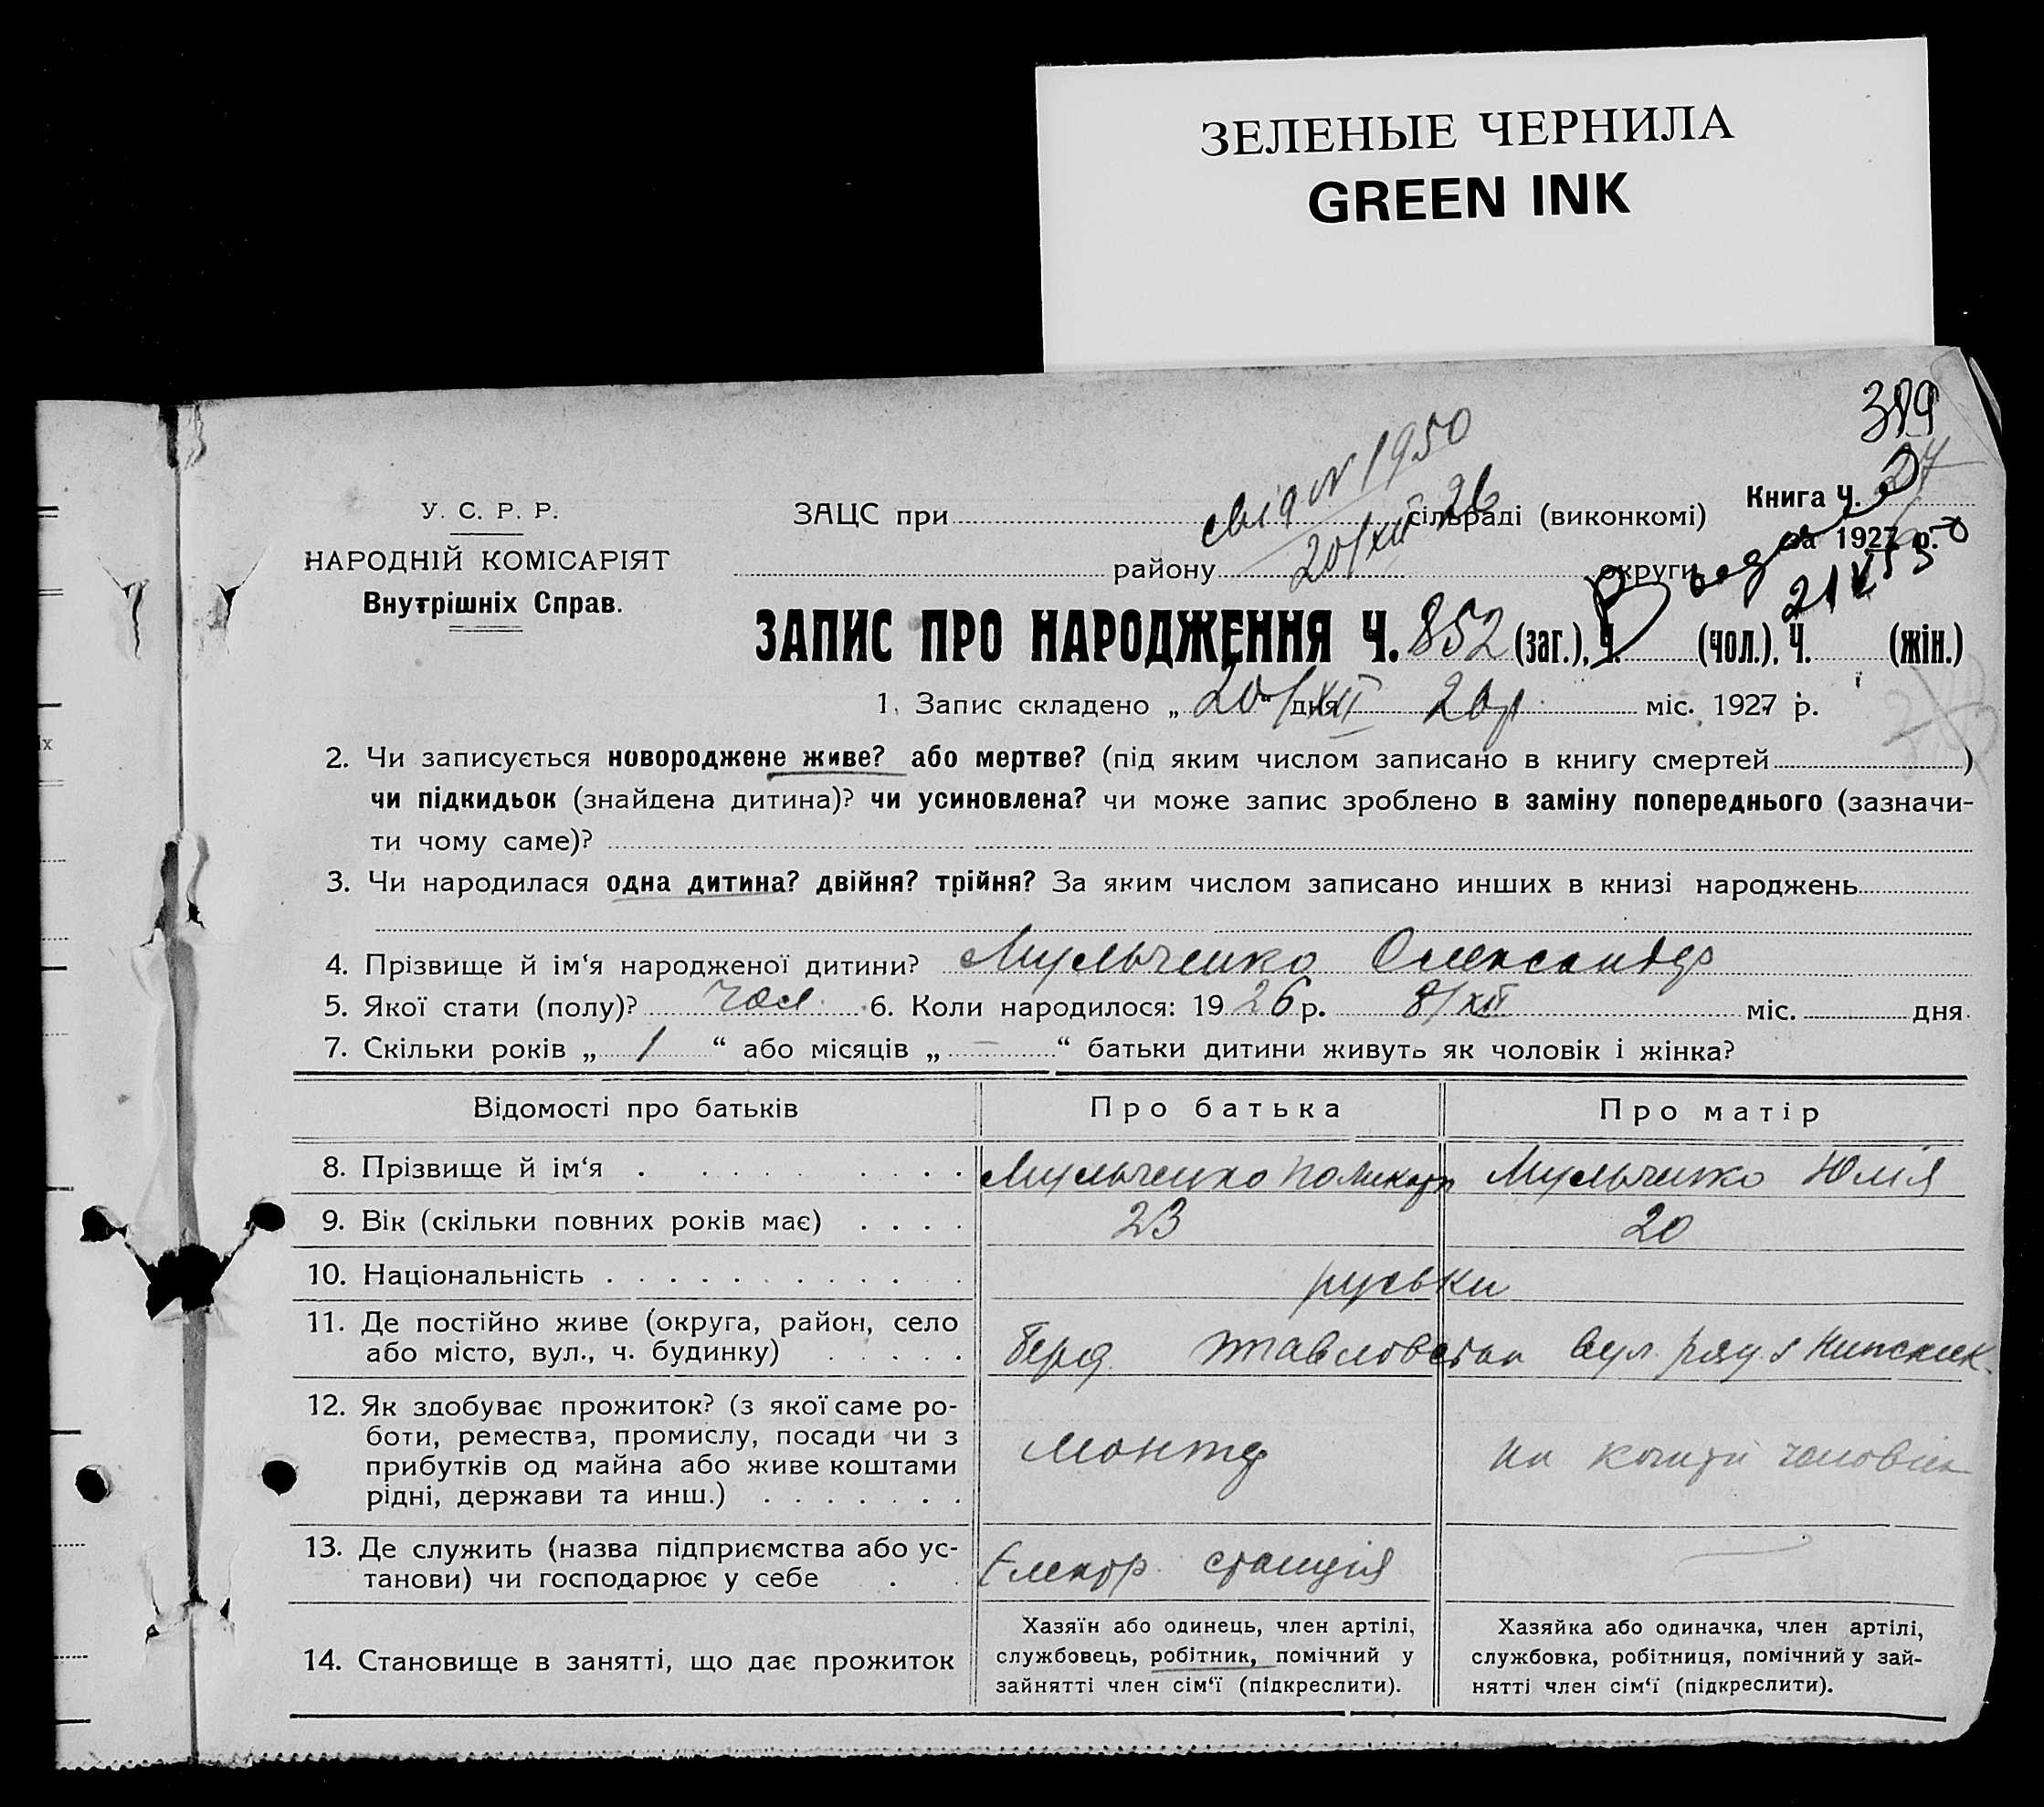 ЗЕЛЕНЫЕ ЧЕРНИЛА
GREEN INK
У. С. Р. Р.
НАРОДНІЙ КОМІСАРІЯТ
Внутрішніх Справ.
свід N 1950
20/XII 26
ЗАЦС при сільраді (виконкомі)
району округи
Книга Ч. 27
за 1927 р.
ЗАПИС ПРО НАРОДЖЕННЯ Ч. 852 (заг.), Ч. (чол.), Ч. (жін.)
1. Запис складено „ 20/XII “ дня 26 р. міс. 1927 р.
2. Чи записується новороджене живе? або мертве? (під яким числом записано в книгу смертей )
чи підкидьок (знайдена дитина)? чи усиновлена? чи може запис зроблено в заміну попереднього (зазначи-
ти чому саме)?
3. Чи народилася одна дитина? двійня? трійня? За яким числом записано инших в книзі народжень
4. Прізвище й ім‘я народженої дитини? Мульченко Олександр
5. Якої стати (полу)? чол. 6. Коли народилося: 19 26 р. 8/XII міс. дня
7. Скільки років „ 1 “ або місяців „ — “ батьки дитини живуть як чоловік і жінка?
Відомості про батьків Про батька Про матір
8. Прізвище й ім‘я Мульченко Поликарп Мульченко Юлія
9. Вік (скільки повних років має) 23 20
10. Національність руськи
11. Де постійно живе (округа, район, село
або місто, вул., ч. будинку) вул.
12. Як здобуває прожиток? (з якої саме ро-
боти, ремества, промислу, посади чи з
прибутків од майна або живе коштами
рідні, держави та инш.) монтер на кошти чоловіка
13. Де служить (назва підприємства або ус-
танови) чи господарює у себе Електр. станція
14. Становище в занятті, що дає прожиток
Хазяїн або одинець, член артілі,
службовець, робітник, помічний у
зайнятті член сім‘ї (підкреслити).
Хазяйка або одиначка, член артілі,
службовка, робітниця, помічний у зай-
нятті член сім‘ї (підкреслити).